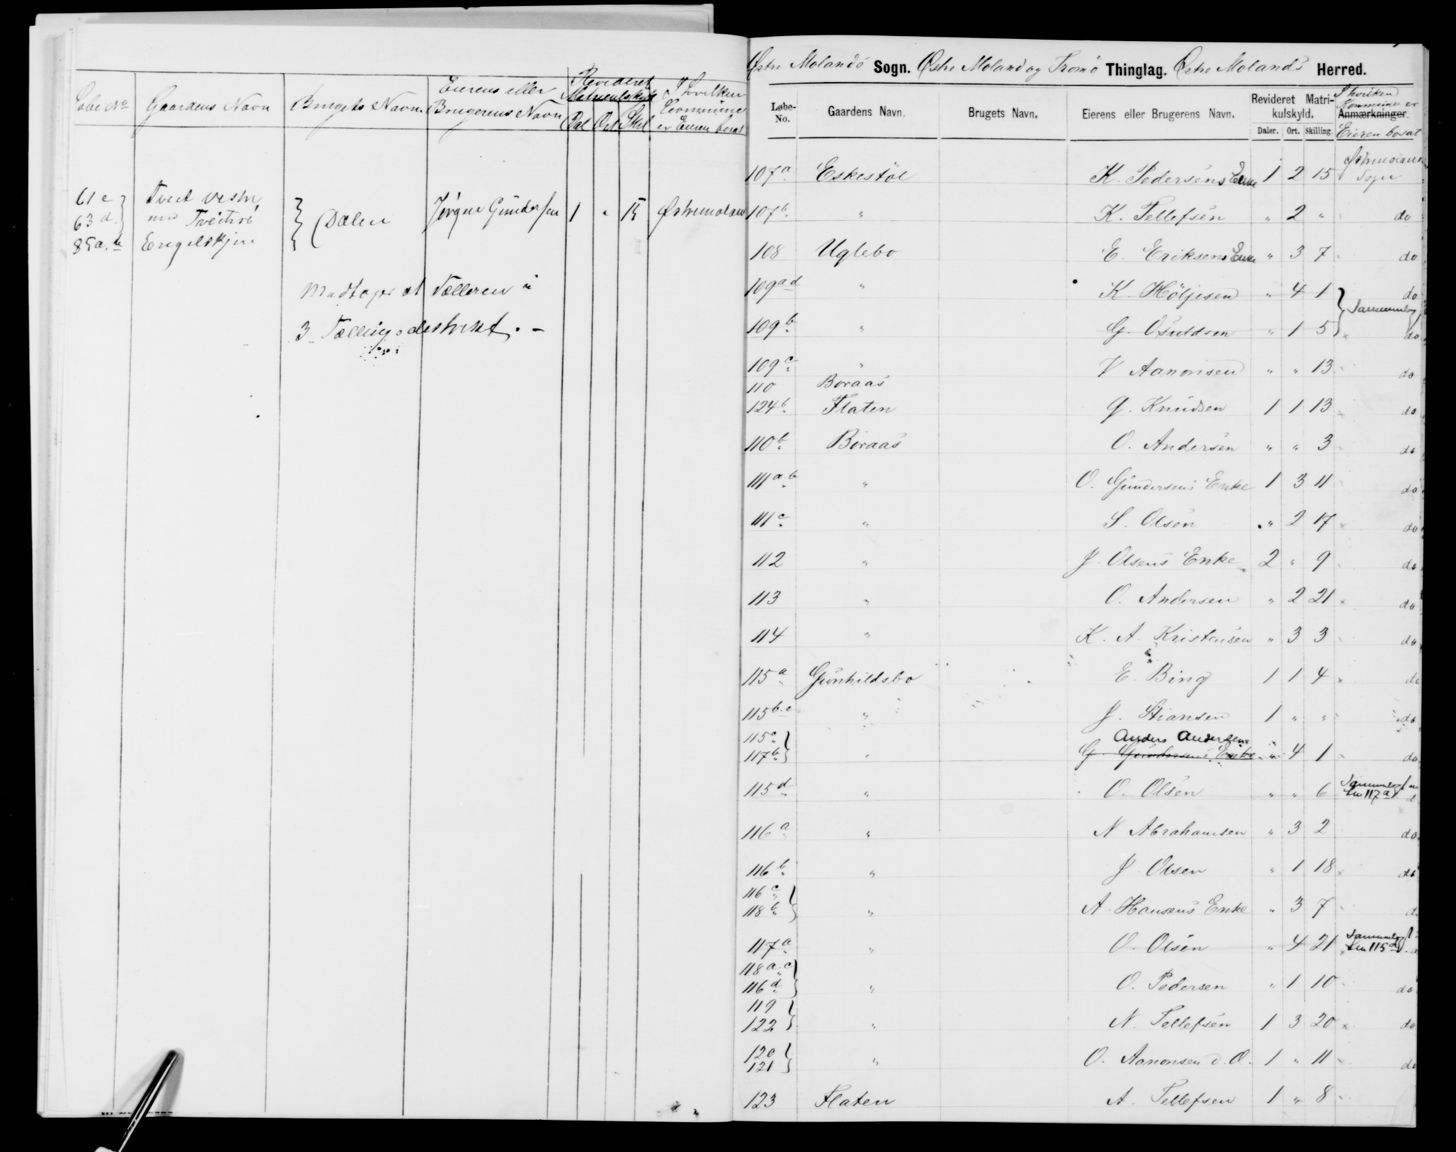 Løbe No Gaardens Navn Brugets Navn Eierens eller Brugerens Navn Revideret Matriculskyld Dal Ort Skil I hvilken Commune er Eieren bosat
61 c Tveit vestre
63 d
85 a. Engelskjøn
Dalen Jørgen Gundersen 1 " 15 Østremoland
Modtages af Tælleren i
3 Tællingsdistrikt. –
Østre Molands Sogn. Østre Moland og Tromø Thinglag. Østre Molands Herred.
Løbe-No. Gaardens Navn. Brugets Navn. Eierens eller Brugerens Navn. Revideret Matrikulskyld. Daler. Ort. Skilling. Anmærkninger.
I hvilken Kommune er Eieren bosat
107 a Eskestøl K. Pedersens Enke 1 2 15 Sogn
107 b. " K. Tellefsen " 2 " do
108 Uglebo E. Eriksens Enke " 3 7 do
109 a d " K. Høljesen " 4 1 do
109 b. " G. Osuldsen " 1 5 do
109 c " V Aanonsen " " 13 do
110 Boraas
124 b. Flaten G. Knudsen 1 1 13 do
110 b. Boraas O. Andersen " " 3 do
111 a b " O. Gundersens Enke 1 3 11 do
111 c " S. Olsen " 2 17 do
112 " J. Olsens Enke 2 " 9 do
113 " O. Andersen " 2 21 do
114 " K. A. Kristensen " 3 3 do
115 a Gunhildsbo E. Bing 1 1 4 do
115 b " J. Stiansen 1 " " do
115 c Anders Andersen
117 b. " G. Gundersens Enke " 4 1 do
115 d " O. Olsen " " 6 117 a
116 a " N Abrahamsen " 3 2 do
116 b " J. Olsen " 1 18 do
116 c
118 b. " A. Hansens Enke " 3 7
117 a " O. Olsen " 4 21 115 d
118 a. c
116 d " O. Pedersen " 1 10 do
119
122 " N. Tellefsen 1 3 20 do
120
121 " O. Aanonsen d. O. 1 " 11 do
123 Flaten A. Tellefsen 1 " 8